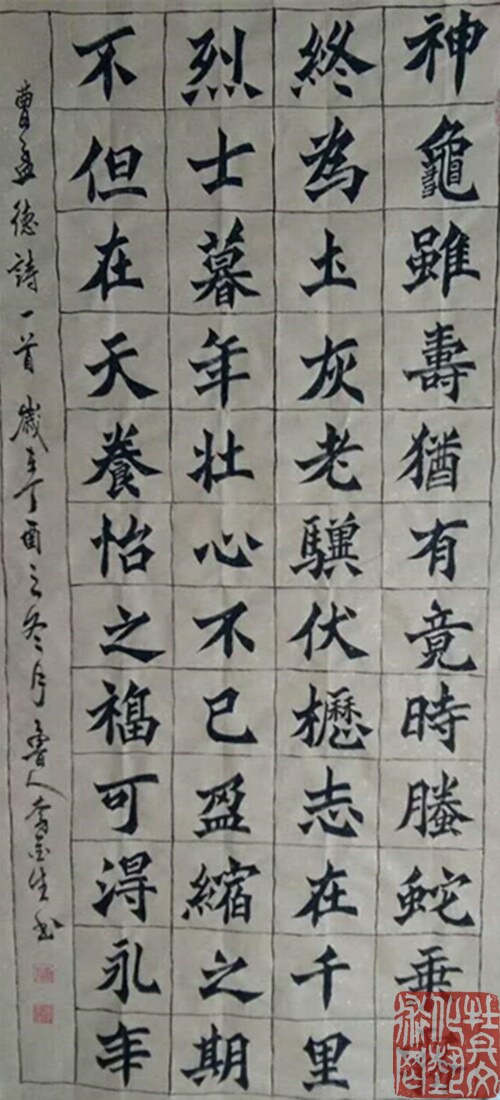 神龜雖壽猶有竟時螣蛇乘
終為土灰老驥伏櫪志在千里
烈士暮年壯心不已盈縮之期
不但在天養怡之福可得永年
曹孟德詩一首歲在丁酉之冬月魯人李金生书
牡丹文化藝